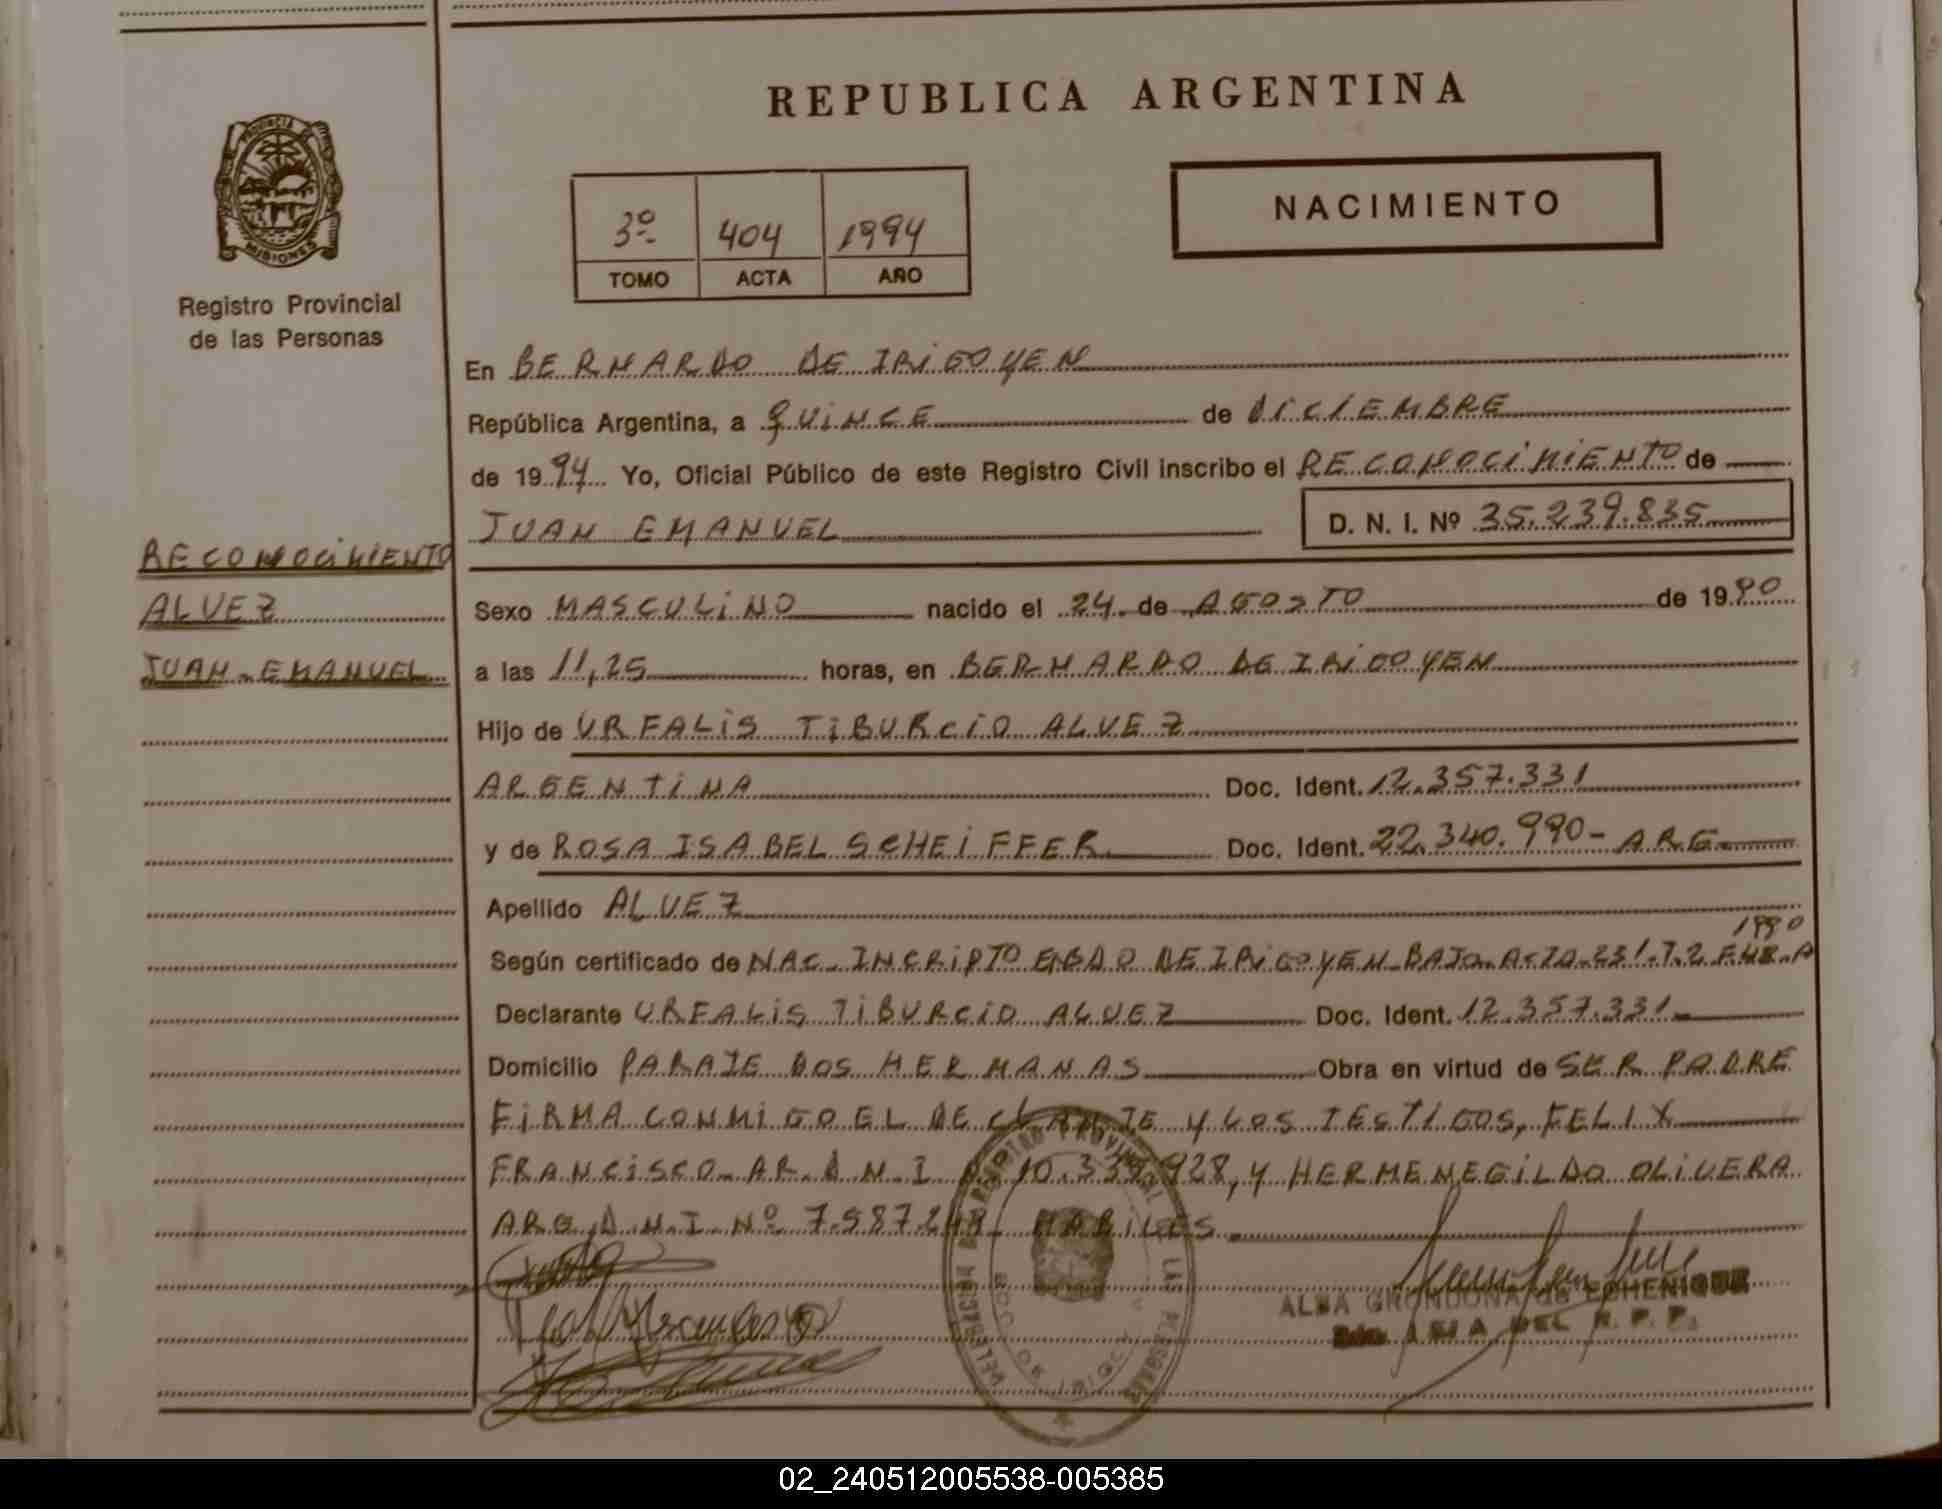 REPUBLICA ARGENTINA
PROVINCIA DE
MISIONES
Registro Provincial
de las Personas
3º 404 1994
TOMO ACTA AÑO
NACIMIENTO
En BERNARDO DE IRIGOYEN
República Argentina, a QUINCE de DICIEMBRE
de 1994 Yo, Oficial Público de este Registro Civil inscribo el RECONOCIMIENTO de
JUAN EMANUEL D. N. I. Nº 35.239.835
RECONOCIMIENTO
ALVEZ
JUAN EMANUEL
Sexo MASCULINO nacido el 24 de AGOSTO de 1990
a las 11,25 horas, en BERNARDO DE IRIGOYEN
Hijo de URFALIS TIBURCIO ALVEZ
ARGENTINA Doc. Ident. 12.357.331
y de ROSA ISABEL SCHEIFFER Doc. Ident. 22.340.990- ARG
Apellido ALVEZ
1990
Según certificado de NAC. INCRIPTO EN BDO DE IRIGOYEN BAJO ACTA 231.T.2 F.48.A
Declarante URFALIS TIBURCIO ALVEZ Doc. Ident. 12.357.331
Domicilio PARAJE DOS HERMANAS Obra en virtud de SER PADRE
FIRMA CONMIGO EL DECLANTE Y LOS TESTIGOS, FELIX
FRANCISCO AR. D.N.I 10.339.928, Y HERMENEGILDO OLIVERA
ARG. D.N.I Nº HABILES
ALBA GRONDONA DE ECHENIQUE
DEL R. P. P.
02_240512005538-005385